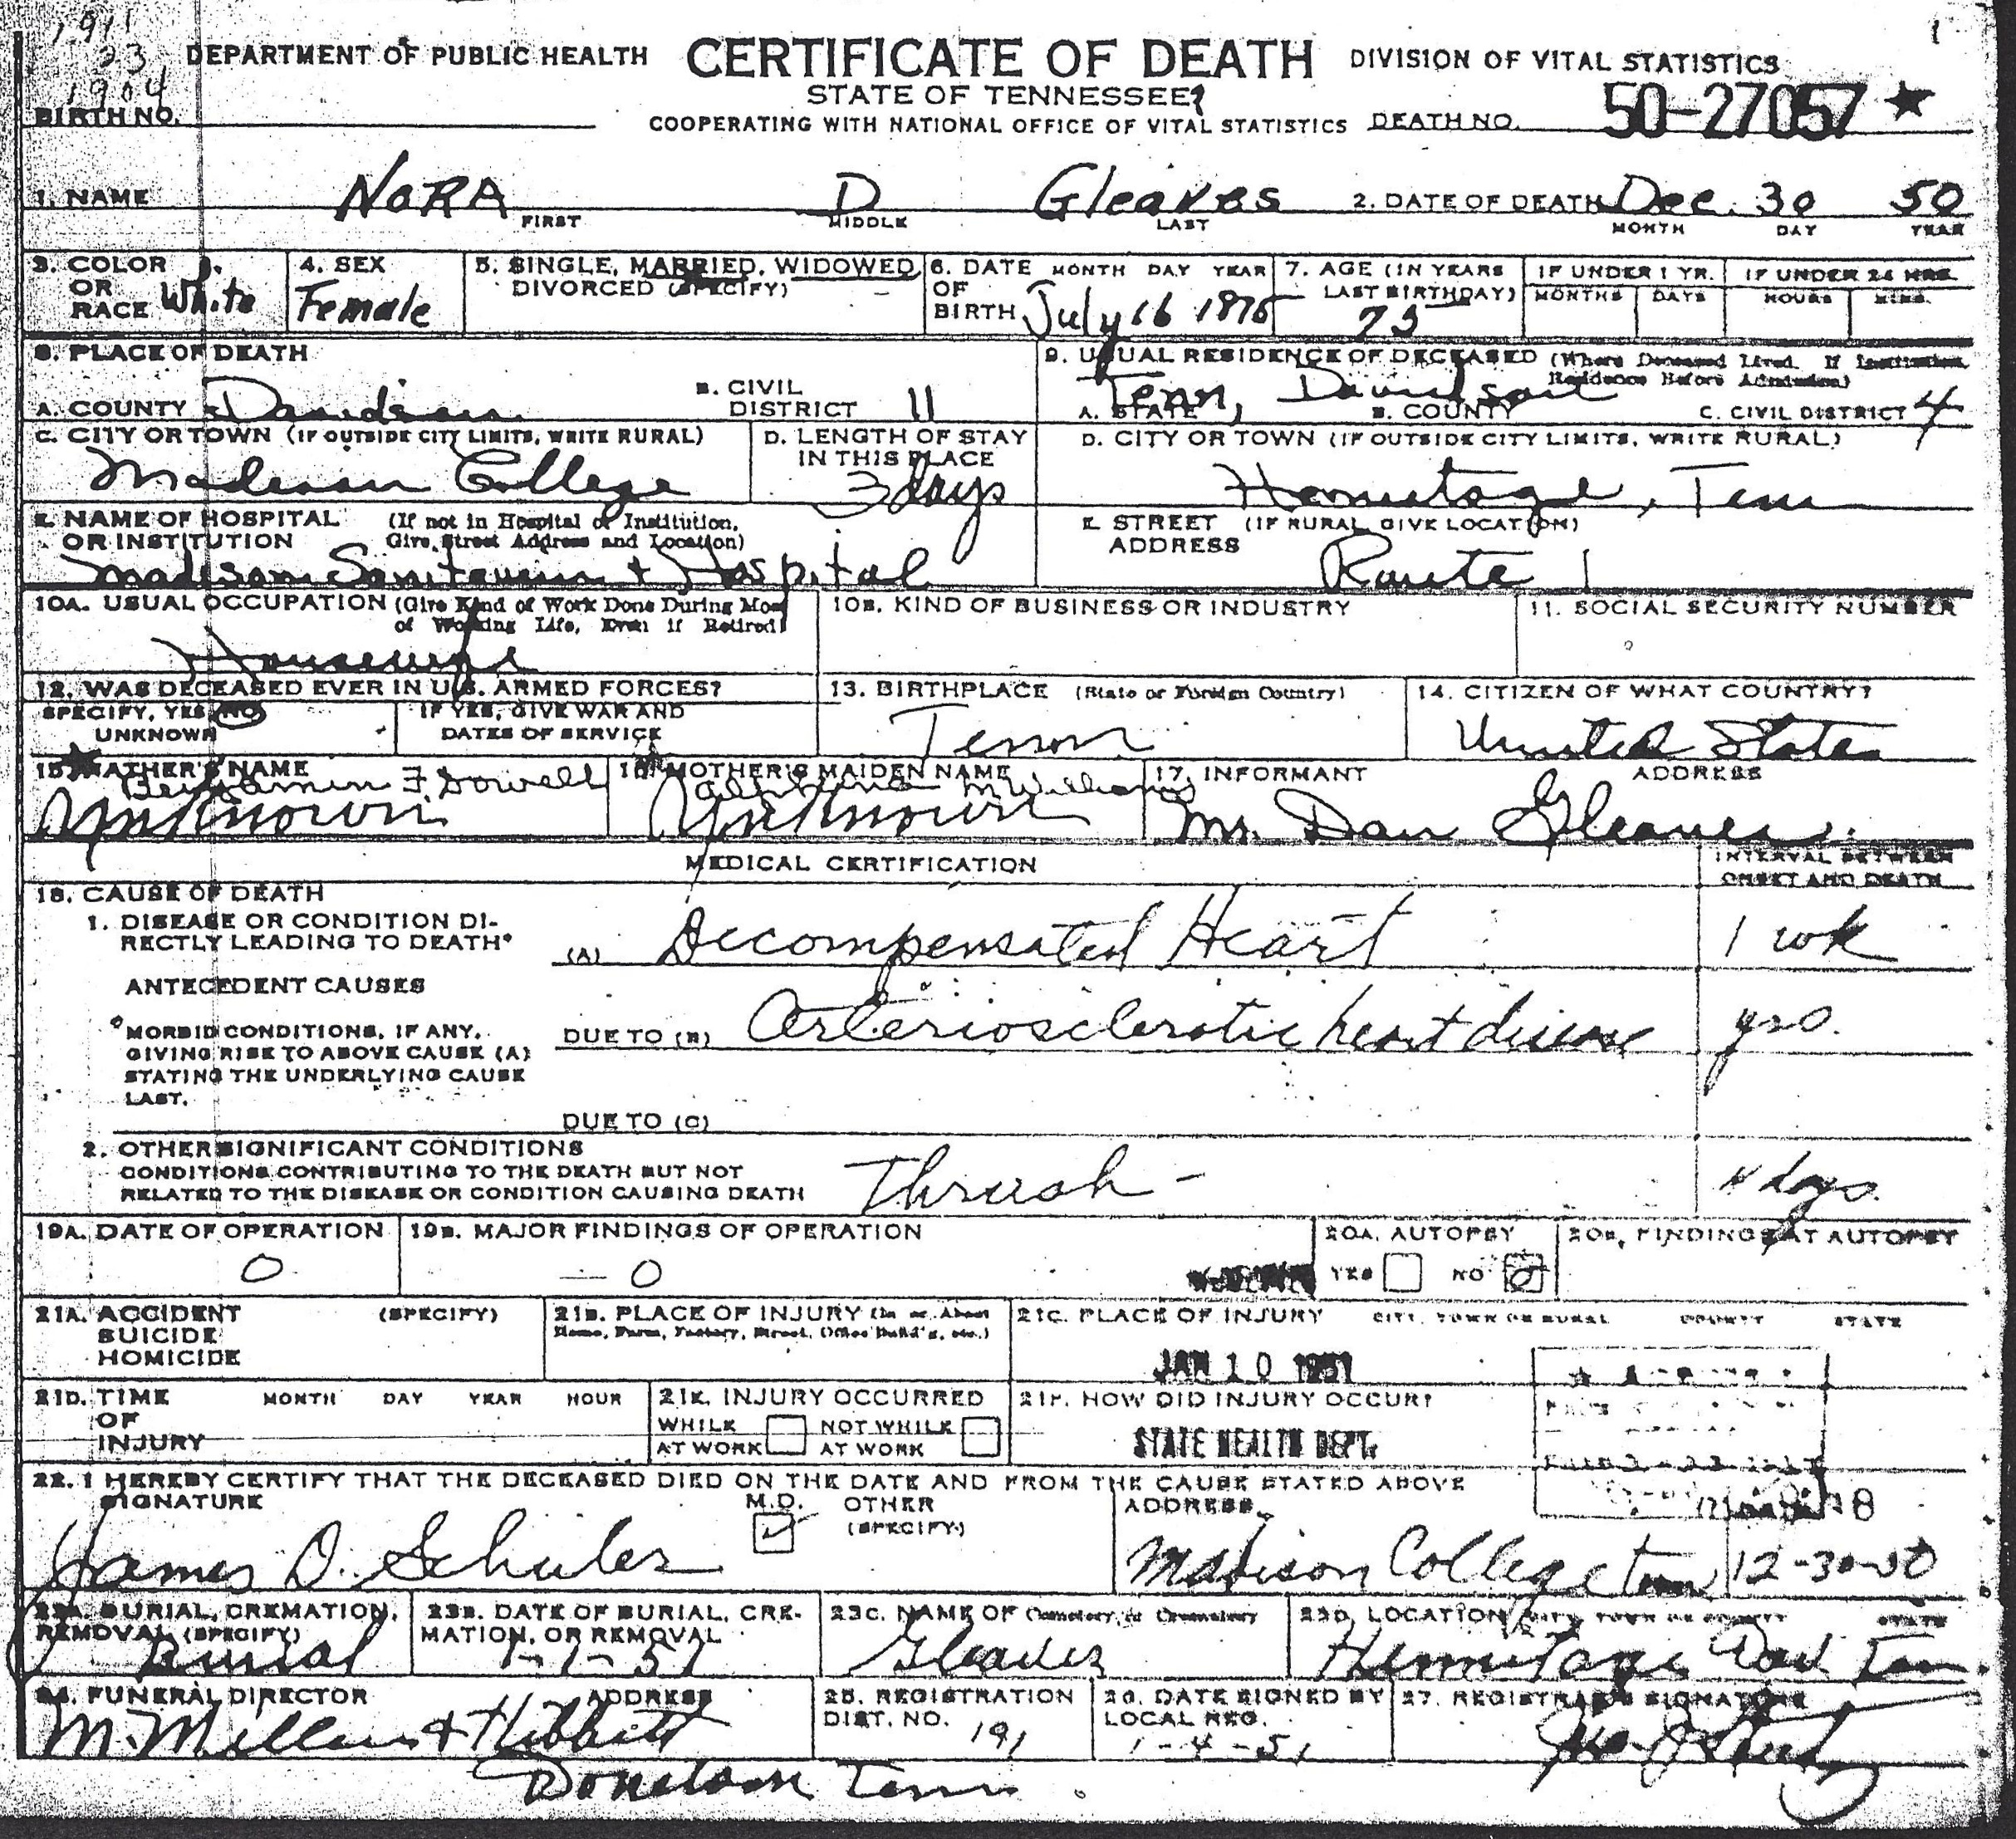 1911
23
1904
1
DEPARTMENT OF PUBLIC HEALTH CERTIFICATE OF DEATH DIVISION OF VITAL STATISTICS
STATE OF TENNESSEE
BIRTH NO. COOPERATING WITH NATIONAL OFFICE OF VITAL STATISTICS DEATH NO. 50-27057 ★
1. NAME NORA D Gleaves 2. DATE OF DEATH Dec. 30 50
FIRST MIDDLE LAST MONTH DAY YEAR
3. COLOR OR RACE White 4. SEX Female 5. SINGLE, MARRIED, WIDOWED, DIVORCED (SPECIFY) 6. DATE OF BIRTH MONTH DAY YEAR July 16 1875 7. AGE (IN YEARS LAST BIRTHDAY) 75 IF UNDER 1 YR. MONTHS DAYS IF UNDER 24 HRS. HOURS MINS.
8. PLACE OF DEATH 9. USUAL RESIDENCE OF DECEASED (Where Deceased Lived. If Institution, Residence Before Admission)
A. COUNTY Davidson B. CIVIL DISTRICT 11 A. STATE Tenn, B. COUNTY Davidson C. CIVIL DISTRICT 4
C. CITY OR TOWN (IF OUTSIDE CITY LIMITS, WRITE RURAL) D. LENGTH OF STAY IN THIS PLACE D. CITY OR TOWN (IF OUTSIDE CITY LIMITS, WRITE RURAL)
Madison College 3 days Hermitage, Tenn
E. NAME OF HOSPITAL OR INSTITUTION (If not in Hospital or Institution, Give Street Address and Location) E. STREET ADDRESS (IF RURAL, GIVE LOCATION)
Madison Sanitarium + Hospital Route 1
10A. USUAL OCCUPATION (Give Kind of Work Done During Most of Working Life, Even if Retired) 10B. KIND OF BUSINESS OR INDUSTRY 11. SOCIAL SECURITY NUMBER
Housewife
12. WAS DECEASED EVER IN U.S. ARMED FORCES? 13. BIRTHPLACE (State or Foreign Country) 14. CITIZEN OF WHAT COUNTRY?
SPECIFY, YES, NO, UNKNOWN IF YES, GIVE WAR AND DATES OF SERVICE Tenn United States
15. FATHER'S NAME 16. MOTHER'S MAIDEN NAME 17. INFORMANT ADDRESS
Benjamin F. Dowell M Williams
Unknown Unknown Mr. Dan Gleaves
MEDICAL CERTIFICATION INTERVAL BETWEEN ONSET AND DEATH
18. CAUSE OF DEATH
1. DISEASE OR CONDITION DIRECTLY LEADING TO DEATH* (A) Decompensated Heart 1 wk
ANTECEDENT CAUSES
*MORBID CONDITIONS, IF ANY, GIVING RISE TO ABOVE CAUSE (A) STATING THE UNDERLYING CAUSE LAST. DUE TO (B) Arteriosclerotic heart disease yrs.
DUE TO (C)
2. OTHER SIGNIFICANT CONDITIONS
CONDITIONS CONTRIBUTING TO THE DEATH BUT NOT RELATED TO THE DISEASE OR CONDITION CAUSING DEATH Thrush - 4 days
19A. DATE OF OPERATION 0 19B. MAJOR FINDINGS OF OPERATION — 0 20A. AUTOPSY YES NO 20B. FINDINGS AT AUTOPSY
21A. ACCIDENT SUICIDE HOMICIDE (SPECIFY) 21B. PLACE OF INJURY (In or About Home, Farm, Factory, Street, Office Build'g, etc.) 21C. PLACE OF INJURY CITY, TOWN OR RURAL COUNTY STATE
JAN 10 1951
21D. TIME OF INJURY MONTH DAY YEAR HOUR 21E. INJURY OCCURRED WHILE AT WORK NOT WHILE AT WORK 21F. HOW DID INJURY OCCUR?
STATE HEALTH DEPT.
22. I HEREBY CERTIFY THAT THE DECEASED DIED ON THE DATE AND FROM THE CAUSE STATED ABOVE
SIGNATURE M.D. OTHER (SPECIFY) ADDRESS
James D. Schuler Madison College Tenn 12-30-50
23A. BURIAL, CREMATION, REMOVAL (SPECIFY) 23B. DATE OF BURIAL, CREMATION, OR REMOVAL 23C. NAME OF Cemetery or Crematory 23D. LOCATION CITY TOWN OR COUNTY STATE
Burial 1-1-51 Gleaves Hermitage Dav Tenn.
24. FUNERAL DIRECTOR ADDRESS 25. REGISTRATION DIST. NO. 191 26. DATE SIGNED BY LOCAL REG. 1-4-51 27. REGISTRAR'S SIGNATURE
McMillan & Hibbitt
Donelson Tenn